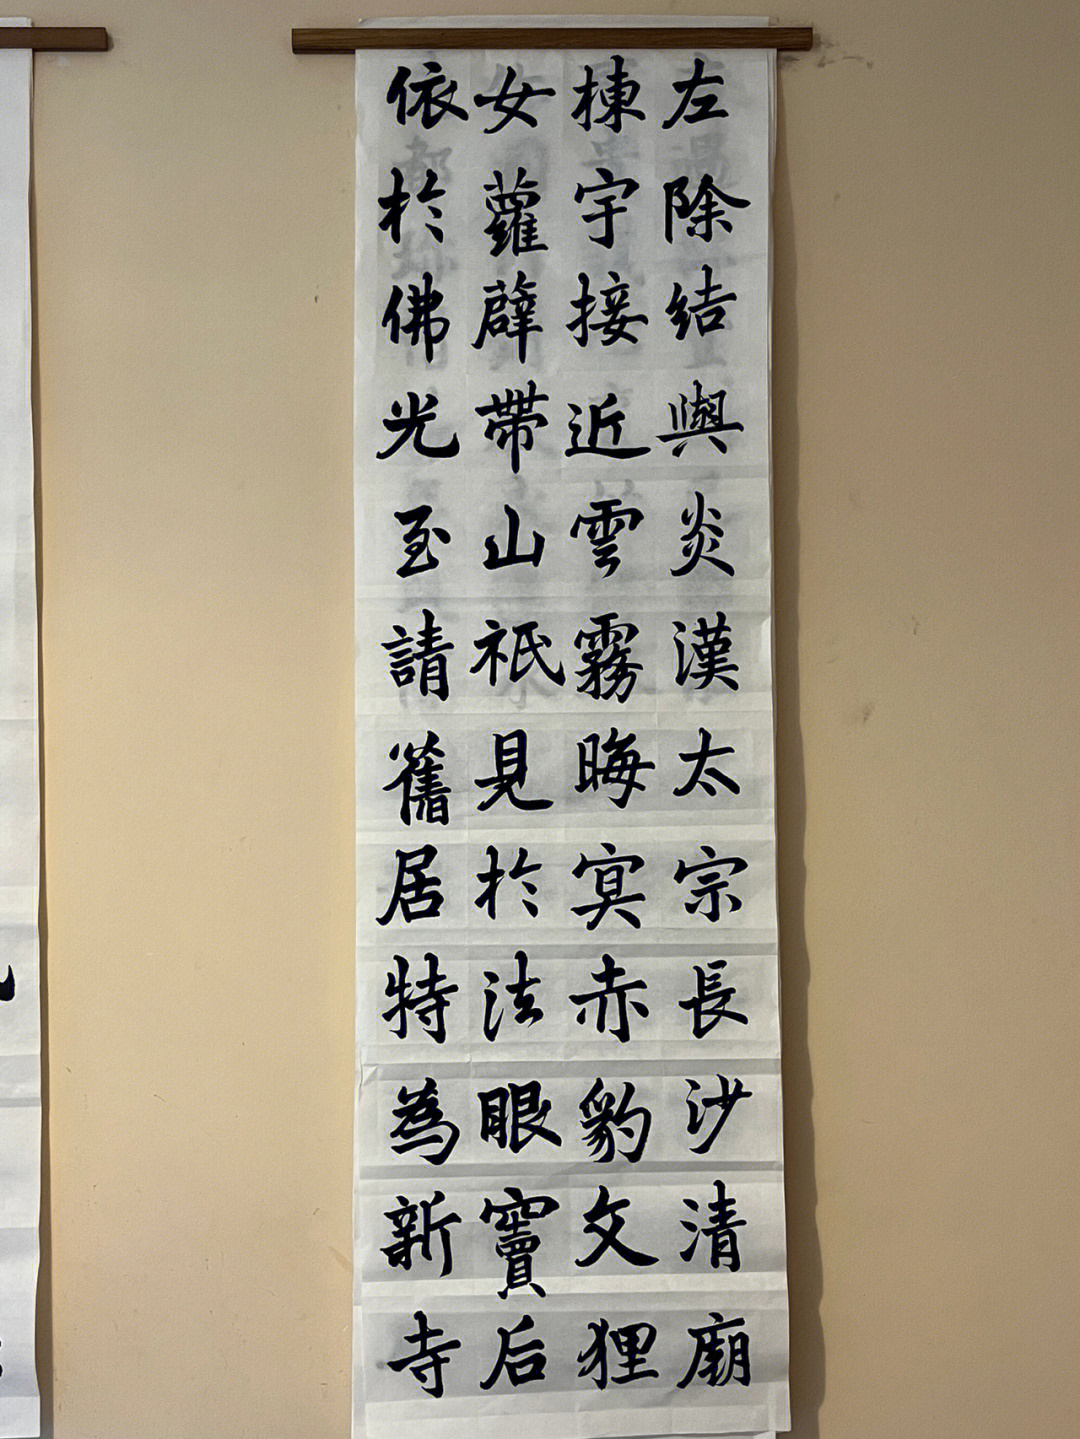 左除結輿炎漢太宗長沙清廟
棟宇接近雲霧晦冥赤豹文狸
女蘿薜帶山祇見於法眼竇后
依於佛光至請舊居特為新寺